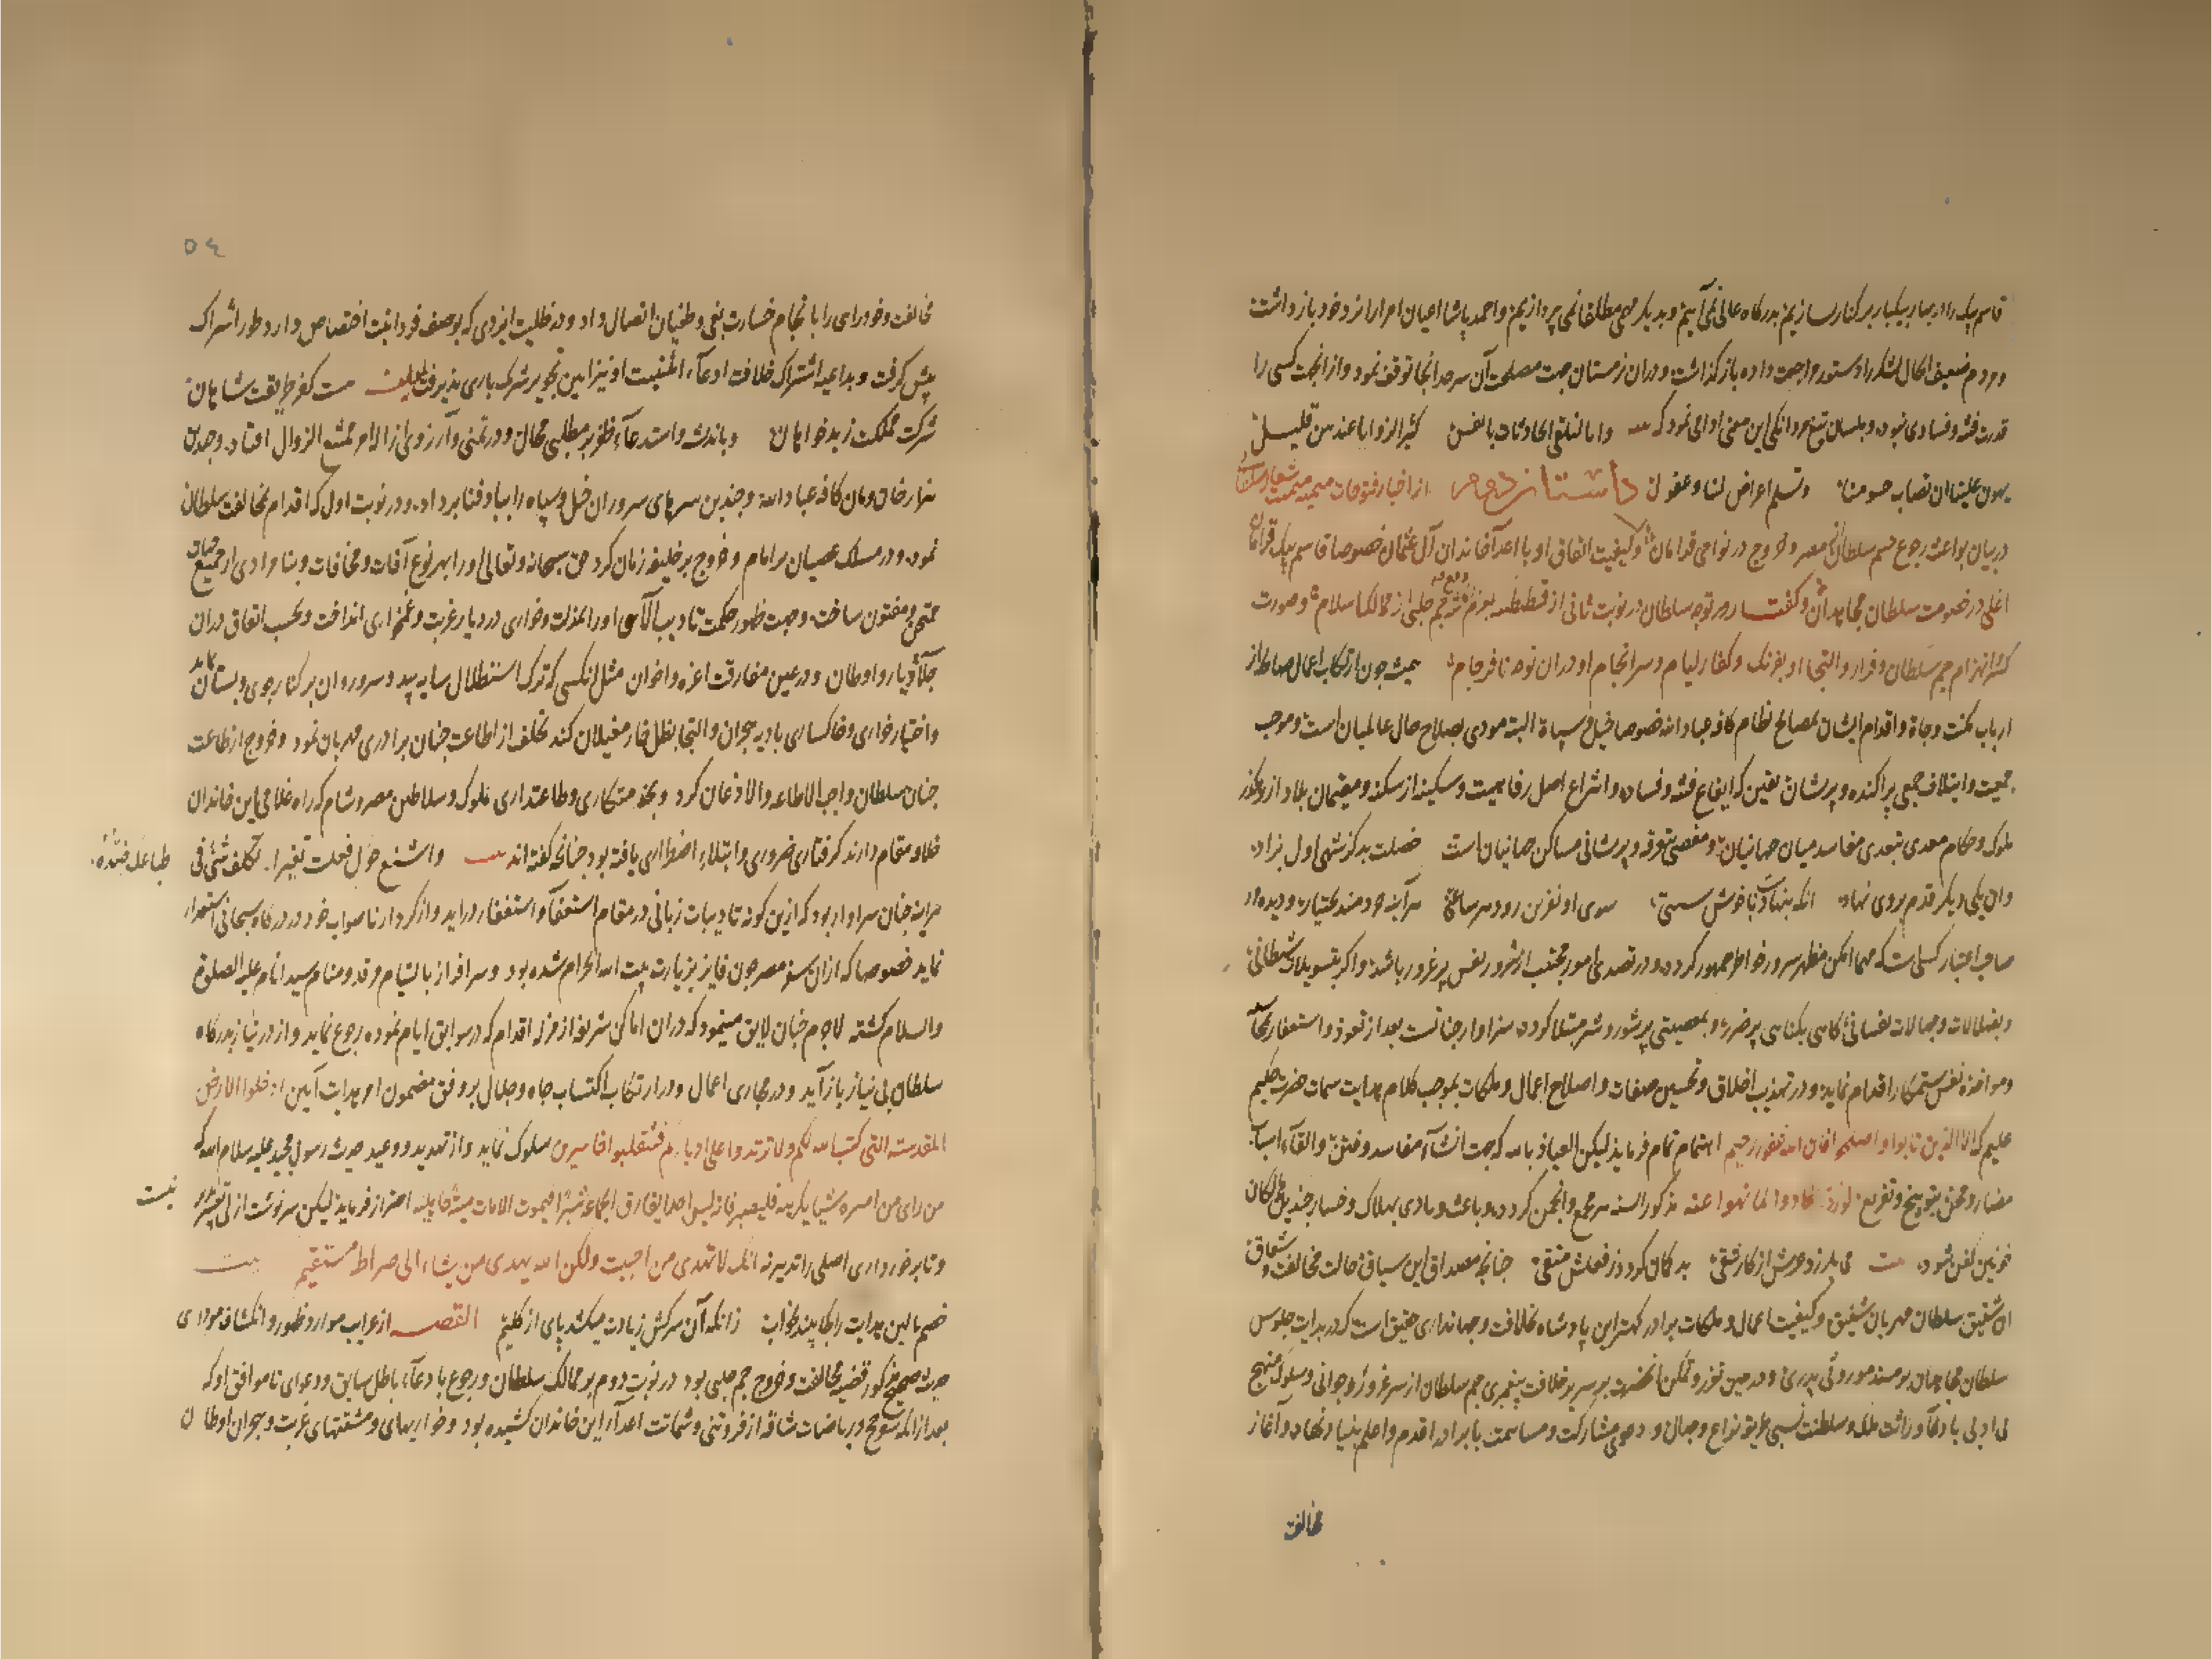 قاسم بیک را از میان بیکبار بر کنار سازیم بدرگاه عالی نمی آییم و بدیگر مهمی مطلقا نمی پردازیم و احمد پاشا اعیان امرا را نزد خود باز داشت
و مردم ضعیف الحال لشکر را دستور و اجازت داده باز گذاشت و در آن زمستان جهت مصلحت آن سرحد آنجا توقف نمود و از آنجهت کسی را
قدرت فتنه و فسادی نبود و بلسان تیغ مردانگی این معنی ادا می نمود که وانا لنلقی الحادثات بانفس کثیر الرزایا عندهن قلیل
یهون علینا ان تصاب جسومنا و تسلم اعراض لنا و عقول داستان دوم از اخبار فتوحات
در بیان بواعث رجوع جم سلطان از مصر و خروج در نواحی قرامان و کیفیت اتفاق او با اعداء خاندان آل عثمان خصوصا قاسم بیک قرامان
اغلی در خصومت سلطان مجاهدان و گفتار در توجه سلطان در نوبت ثانی از قسطنطنیه بعزم دفع فتنه جم چلبی از ممالک اسلام و صورت
انهزام جم سلطان و فرار و التجاء او بفرنگ و کفار لیام و سرانجام او در آن توجه نافرجام چون ارتکاب اعمال
ارباب مکنت و جاه و اقدام ایشان بمصالح نظام کافه عباد الله خصوصا خیل و سپاه البته مودی بصلاح حال عالمیان است و موجب
جمعیت و ایتلاف جمعی پراکنده و پریشان یقین که ایقاع فتنه و فساد و انتزاع اصل رفاهیت و سکینه از سکنه و مقیمان بلاد از
ملوک و حکام معدی بتعدی مفاسد میان جهانیان و مفضی بتفرقه و پریشانی مساکن جهانیان است خصلت بد گر نهی اول نژاد
وان یکی دیگر قدم بر وی نهاد آنکه بنهاد ناخوش سنتی سوی او نفرین رود هر ساعتی هر آینه خردمند بختیار و دیده ور
صاحب اعتبار کسی است که مهما امکن مظهر سرور خواطر جمهور گردد و در تصدی امور مجتنب از شرور نفس پر غرور باشد و اگر بتسویلات شیطانی
و بضلالات و جهالات نفسانی گاهی بگناهی پر ضرر و بمعصیتی پر شور و شر مبتلا گردد سزاوار چنانست بعد از تعوذ و استغفار
و مواخذه نفس ستمکار اقدام نماید و در تهذیب اخلاق و تحسین صفات و اصلاح اعمال و ملکات بموجب کلام هدایت سمات حضرت حکیم
علیم که الا الذین تابوا و اصلحوا فان الله غفور رحیم اهتمام تمام فرماید لیکن العیاذ بالله که جهت انشاء مفاسد و فتن و القاء اسباب
مضار و محن بتوبیخ و تقریع لعادوا لما نهوا عنه مذکور السنه هر مجمع و انجمن گردد و باعث و بادی بهلاک و خسار چندین
خونین کفن شود بیت می بلرزد عرش از کار شقی بد گمان گردد ز فعلش متقی چنانچه مصداق این سیاق حالت مخالفت و شقاق
شفیق سلطان مهربان شفیق و کیفیت اعمال و ملکات برادر کهتر این پادشاه بخلافت و جهانداری حقیق است که در بدایت جلوس
سلطان مجاهدان بر مسند موروثی پدری و در حین تفرد و تمکن آنحضرت بر سریر خلافت پیغمبری جم سلطان از سر غرور جوانی و سلوک منهج
بی ادبی با دعاء وراثت ملک و سلطنت نسبی طریق نزاع و جدال و دعوی مشارکت و مساهمت با برادر اقدم و اعلم بنیاد نهاد و آغاز
مخالفت
٥٤
مخالفت و خودرایی را با انجام خسارت بغی و طغیان اتصال داد و در ظلیت ایزدی که بوصف فردانیت اختصاص دارد طور اشراک
پیش گرفت و بداعیه اشتراک خلافت ادعاء اثنینیت او نیز آیین تجویز شرک باری پذیرفت بیت کفر طریقت شاهان
شرکت مملکت زبد خواهان و باندیشه و استدعاء ظفر بر مطلبی محال و در تمنی و آرزوی از الامر ممتنع الزوال افتاد و چندین
هزار خان و مان کافه عباد الله و چندین سرهای سروران خیل و سپاه را بباد فنا بر داد و در نوبت اول که اقدام بمخالفت سلطان
نمود و در مسلک عصیان بر امام و خروج بر خلیفه زمان کرد حق سبحانه و تعالی او را بهر نوع آفات و مخافات و بنامرادی از جمیع جهات
ممتحن و مفتون ساخت و جهت ظهور حکمت تادیب الهی او را بمذلت و خواری در دیار غربت و غمخواری انداخت و بحسب اتفاق در آن
جلاء دیار و اوطان و در عین مفارقت اعزه و اخوان مثل آنکسی که ترک استظلال سایه بید و سرو روان بر کنار جوی و بستان نماید
و اختیار خواری و خاکساری بادیه هجران و التجا بظل خار مغیلان کند تخلف از اطاعت چنان برادری مهربان نمود و خروج از طاعت
چنان سلطان واجب الاطاعه و الاذعان کرد و بخدمتکاری و طاعتداری ملوک و سلاطین مصر و شام که راه غلامی این خاندان
خلافت مقام دارند گرفتاری ضروری و ابتلاء اضطراری یافته بود چنانچه گفته اند بیت و اشنع حول فعلت تغیرا تکلف شئ فی طباعک ضده
هر آینه چنان سزاوار بود که ازین گونه تادیبات زمانی در مقام استعفا و استغفار در آید و از کردار ناصواب خود در درگاه سبحانی استغفار
نماید خصوصا که از آن سفر مصر چون فایز بزیارت بیت الله الحرام شده بود و سرافراز بالتثام مرقد و مقام سید انام علیه الصلوة
والسلام گشته لاجرم چنان لایق مینمود که در آن اماکن شریفه از مزله اقدام که در سوابق ایام نموده رجوع نماید و از در نیاز بدرگاه
سلطان بی نیاز باز آید و در مجاری اعمال و در ارتکاب اکتساب جاه و جلال بر وفق مضمون امر هدایت آیین ادخلوا الارض
المقدسة التی کتب الله لکم ولا ترتدوا علی ادبارکم فتنقلبوا خاسرین سلوک نماید و از تهدید و وعید حدیث رسول مجید علیه سلام الله که
من رای من امیره شیئا یکرهه فلیصبر فانه لیس احد یفارق الجماعة شبرا فیموت الا مات میتة جاهلیة احتراز فرماید لیکن سرنوشت ازلی را تغییر نیست
و نابرخورداری اصلی را تدبیر نه انک لا تهدی من احببت ولکن الله یهدی من یشاء الی صراط مستقیم بیت
خصم بالین هدایت را کجا بیند بخواب زانکه آن سرکش زیادت میکشد پای از گلیم القصه از غرایب موارد ظهور و انکشاف موداى
حدیث صحیح مذکور قضیه مخالفت و خروج جم چلبی بود در نوبت دوم بر ممالک سلطان و رجوع با دعاء باطل سابق و دعوای ناموافق او که
بعد از آنکه در ریاضات شاقه از فروتنی و شماتت اعداء این خاندان کشیده بود و خواریهای و مشقتهای غربت و هجران اوطان